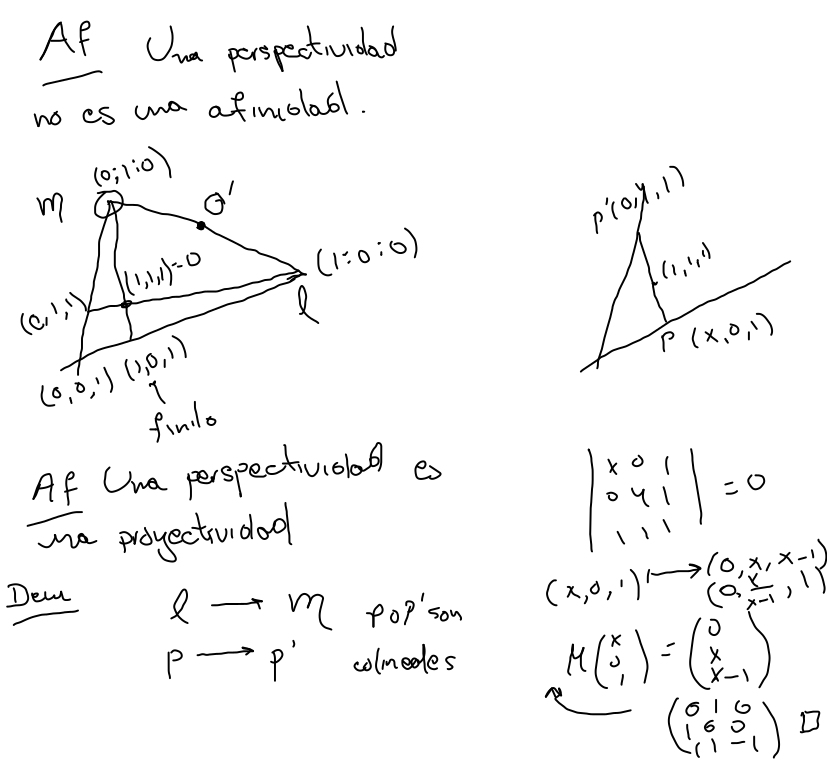 Af Una perspectividad
no es una afinidad.
(0:1:0)
m
O'
(1,1,1)=O
(1:0:0)
(0,1,1)
l
(0,0,1) (1,0,1)
finito
P'(0,y,1)
(1,1,1)
P (x,0,1)
Af Una perspectividad es
una proyectividad
Dem
l → m P O P' son
P → P' colineales
| x 0 1 |
| 0 y 1 | = 0
| 1 1 1 |
(x,0,1) ↦ (0,x,x-1)
(0, x/x-1, 1)
M (x 0 1) = (0 x x-1)
(0 1 0
1 0 0
1 1 -1) □